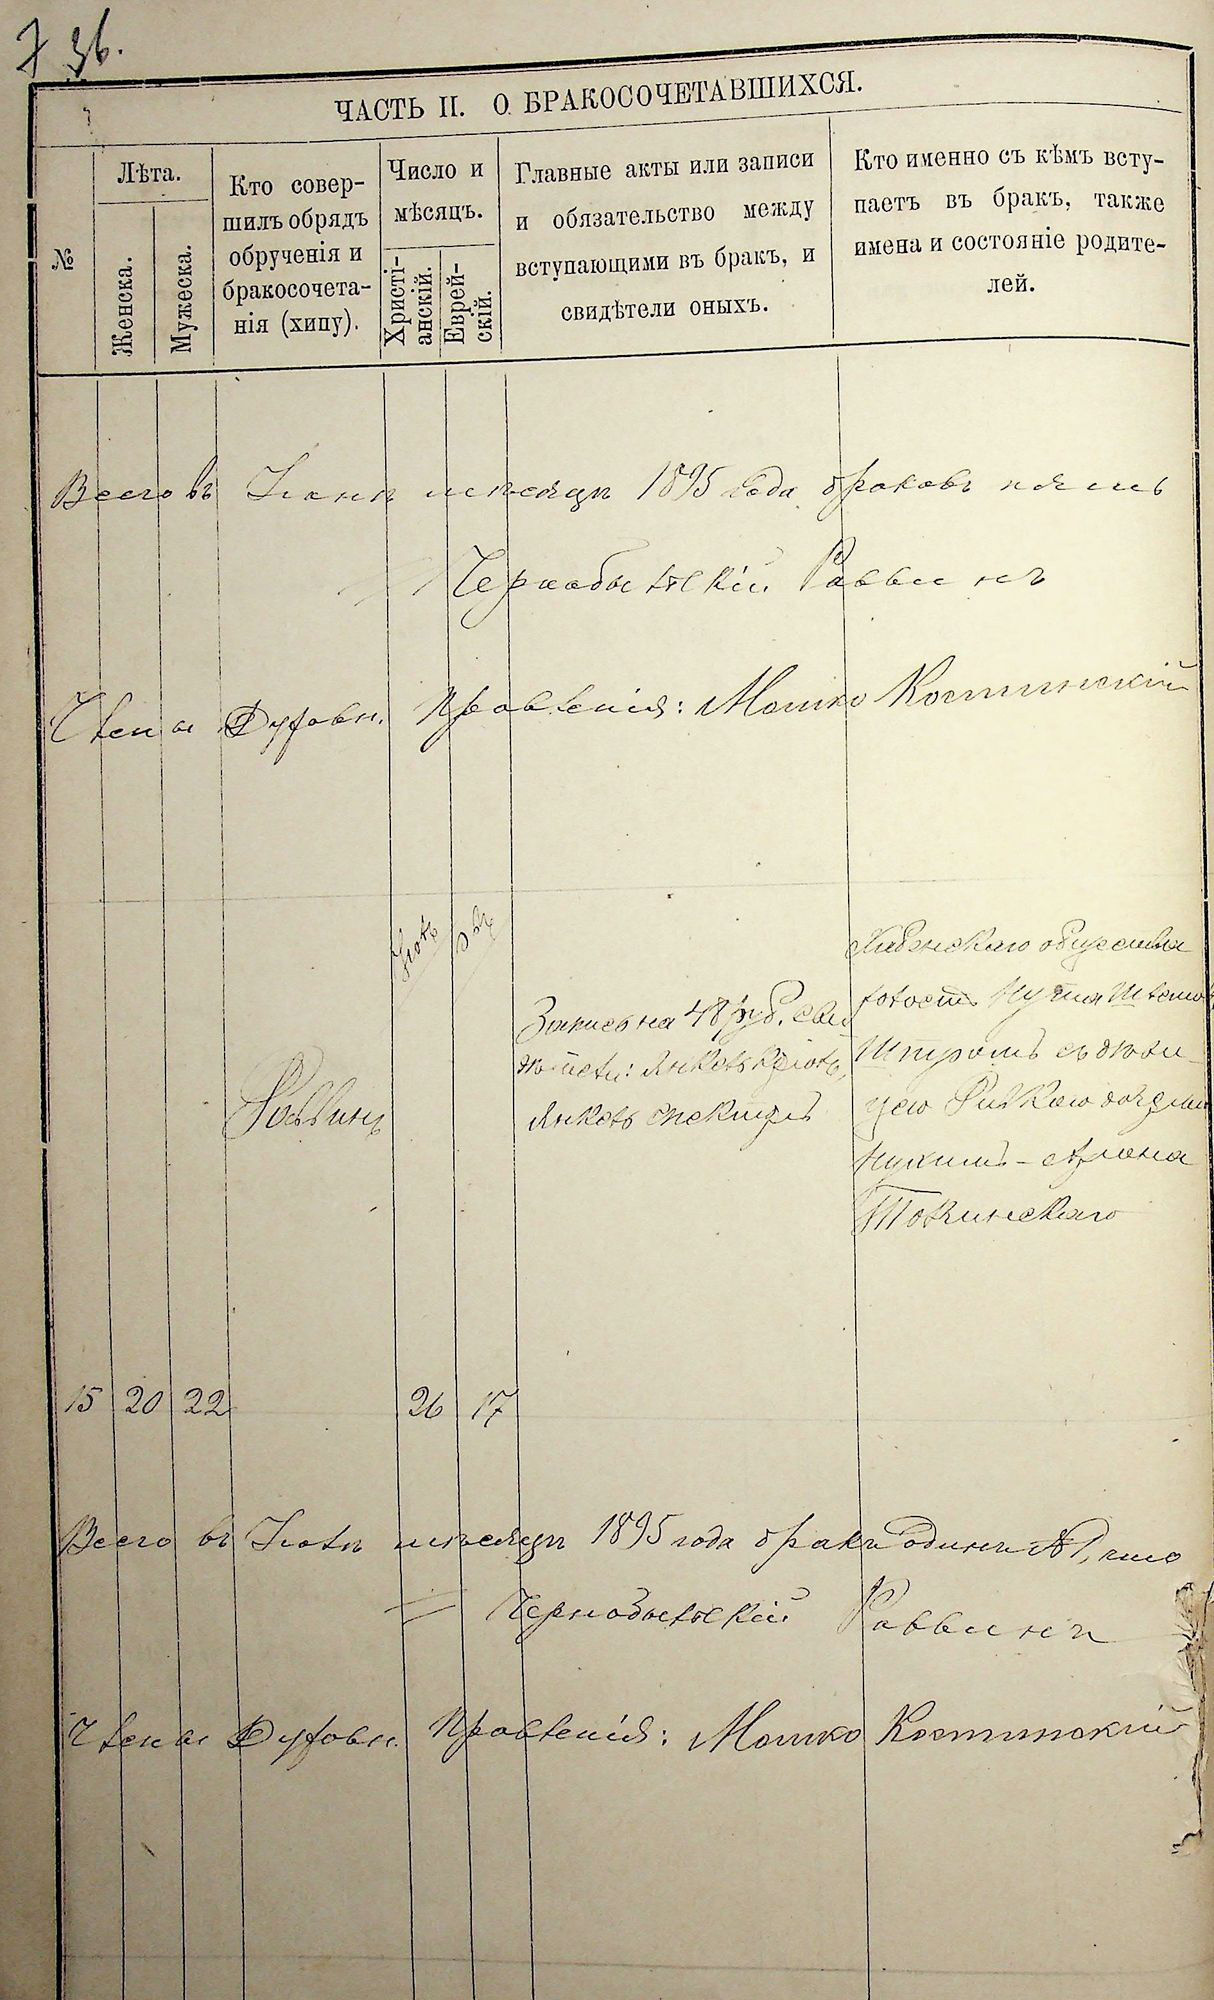 36.
ЧАСТЬ II. О БРАКОСОЧЕТАВШИХСЯ.
№
Лѣта.
Женска.
Мужеска.
Кто совер-
шилъ обрядъ
обрученія и
бракосочета-
нія (хипу).
Число и
мѣсяцъ.
Христі-
анскій.
Еврей-
скій.
Главные акты или записи
и обязательство между
вступающими въ бракъ, и
свидѣтели оныхъ.
Кто именно съ кѣмъ всту-
паетъ въ бракъ, также
имена и состояніе родите-
лей.
Всего въ Іюнѣ мѣсяцѣ 1895 года браковъ пять
Чернобыльскій Раввинъ
Члены Духовн. Правленія: Мошко Костинскій
15 20 22
Раввинъ
Іюль
26
17
Запись на 48 руб. сви
дѣтели: Янкель
Янкель
Хабенскаго общества
холостъ
съ дѣви-
цею Ривкою дочерью
Нухимъ-Арона
Всего въ Іюлѣ мѣсяцѣ 1895 года бракъ одинъ №1, что
Чернобыльскій Раввинъ
Члены Духовн. Правленія: Мошко Костинскій